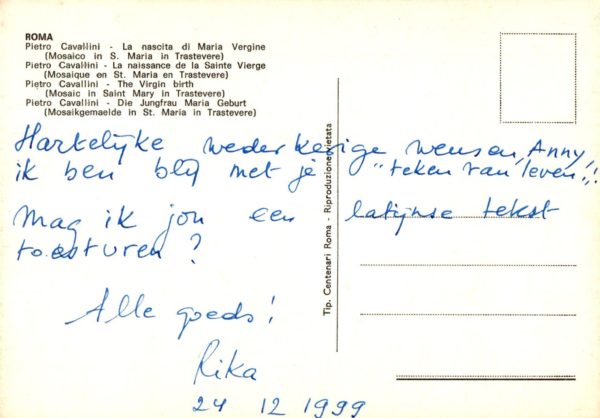 ROMA
Pietro Cavallini - La nascita di Maria Vergine
(Mosaico in S. Maria in Trastevere)
Pietro Cavallini - La naissance de la Sainte Vierge
(Mosaique en St. Maria en Trastevere)
Pietro Cavallini - The Virgin birth
(Mosaic in Saint Mary in Trastevere)
Pietro Cavallini - Die Jungfrau Maria Geburt
(Mosaikgemaelde in St. Maria in Trastevere)
Hartelijke wederkerige wensen, Anny,
ik ben blij met je "teken van leven"!
Mag ik jou een latijnse tekst
toesturen?
Alle goeds!
Rika
24 12 1999
Tip. Centenari Roma - Riproduzione vietata